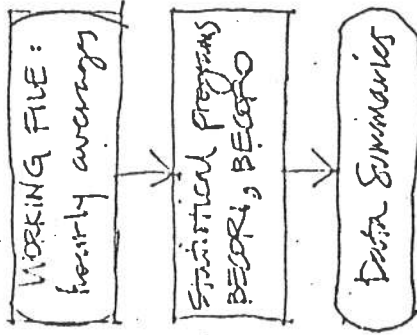 WORKING FILE:
hourly averages
Statistical programs
BECOR1, BECOR0
Data Summaries